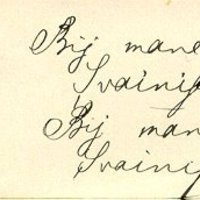 Bij mane
Svaini
Bij man
Svaini